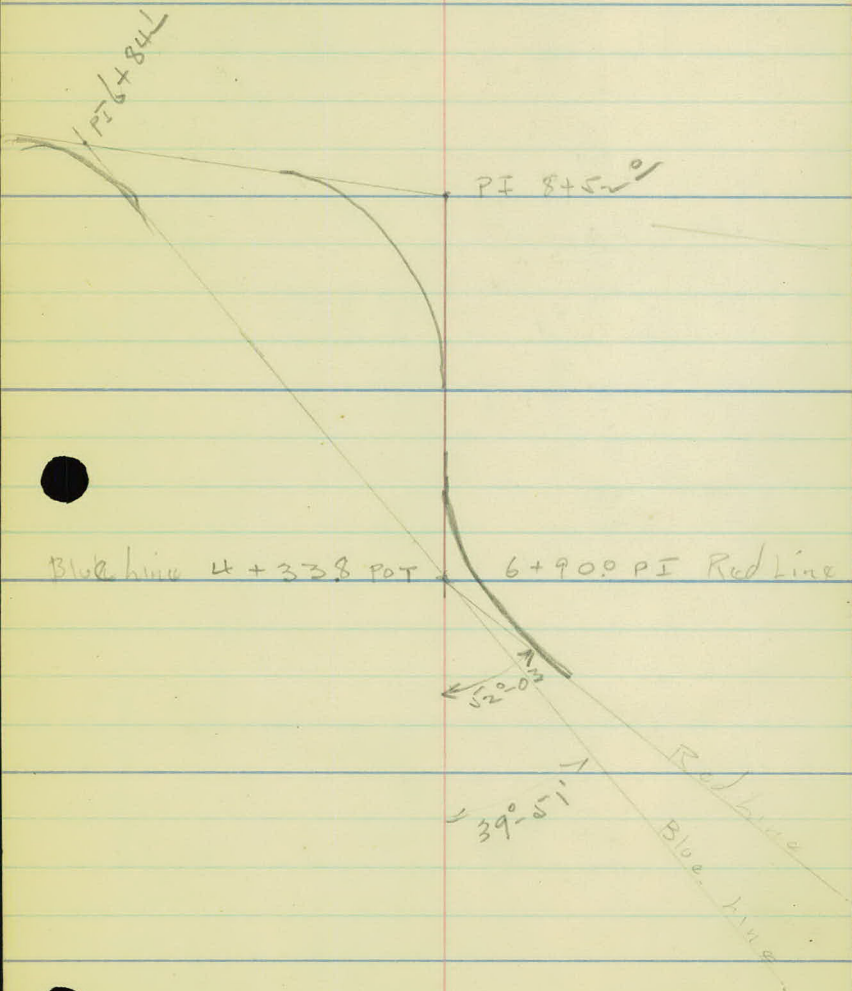 PI 6+84
PI 8+52⁰
Blue Line 4+33.8 POT
6+90.0 PI Red Line
52°-0
39°-51
Red Line
Blue Line